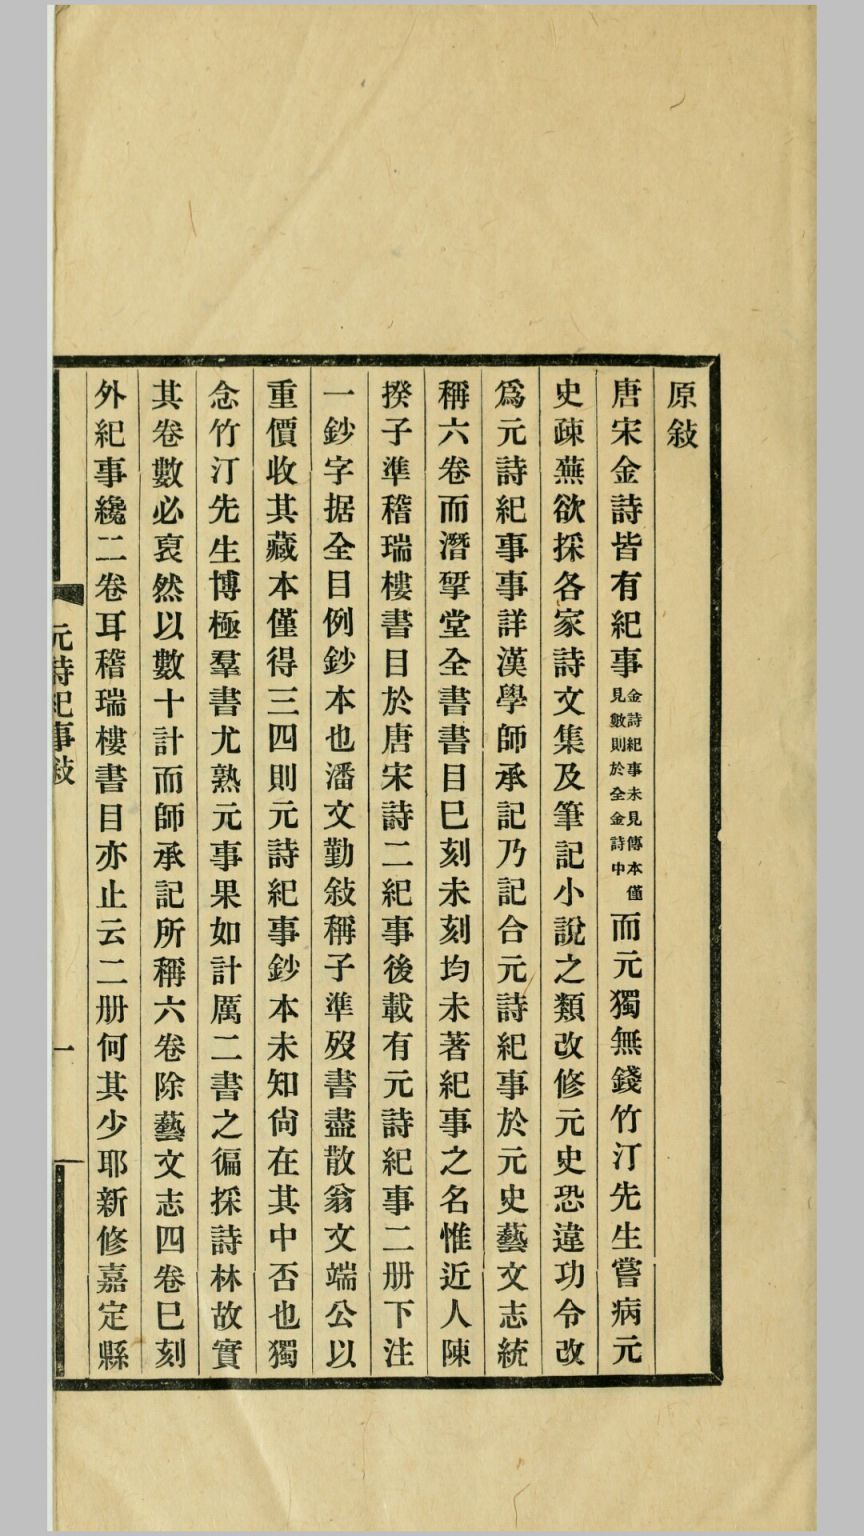 原敍
唐宋金詩皆有紀事金詩紀事未見傳本僅見數則於全金詩中而元獨無錢竹汀先生嘗病元
史疎蕪欲採各家詩文集及筆記小說之類改修元史恐違功令改
爲元詩紀事事詳漢學師承記乃記合元詩紀事於元史藝文志統
稱六卷而潛揅堂全書書目巳刻未刻均未著紀事之名惟近人陳
揆子準稽瑞樓書目於唐宋詩二紀事後載有元詩紀事二册下注
一鈔字据全目例鈔本也潘文勤敍稱子準歿書盡散翁文端公以
重價收其藏本僅得三四則元詩紀事鈔本未知尙在其中否也獨
念竹汀先生博極羣書尤熟元事果如計厲二書之徧採詩林故實
其卷數必裒然以數十計而師承記所稱六卷除藝文志四卷巳刻
外紀事纔二卷耳稽瑞樓書目亦止云二册何其少耶新修嘉定縣
元詩紀事敍
一